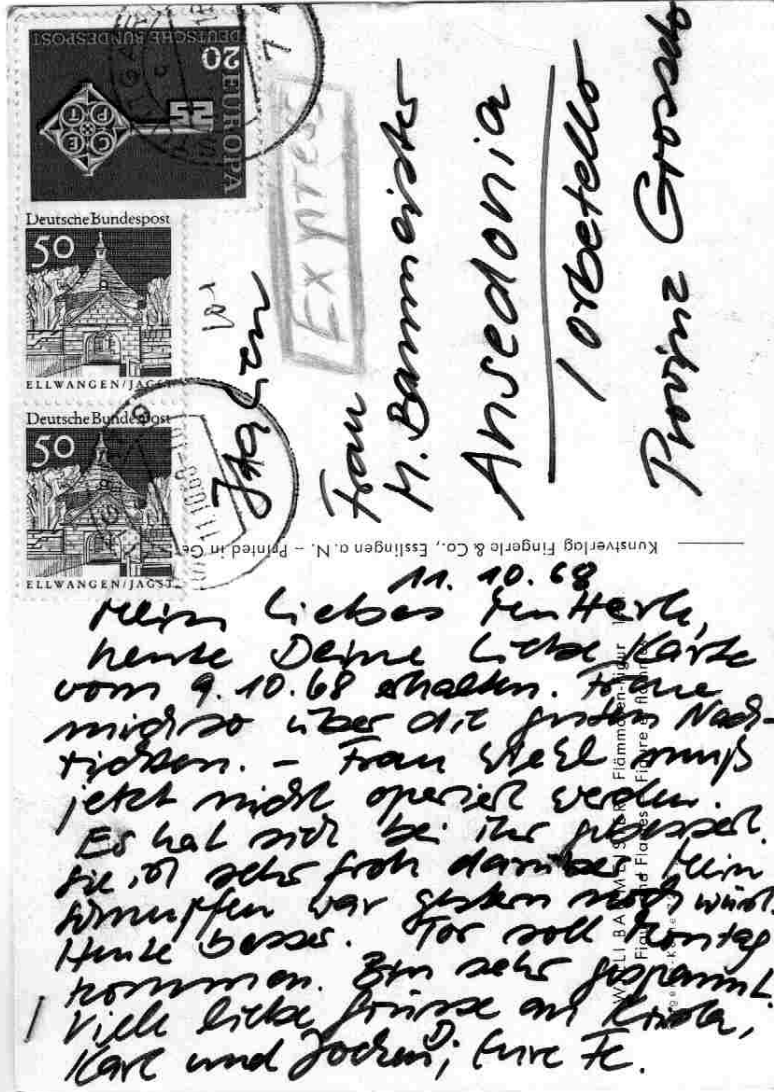 EUROPA
20
DEUTSCHE BUNDESPOST
CEPT
Deutsche Bundespost
50
ELLWANGEN/JAGST
Deutsche Bundespost
50
ELLWANGEN/JAGST
Express
Italien
Frau
M. Baumeister
Ansedonia
/ Orbetello
Provinz Grosseto
Kunstverlag Fingerle & Co., Esslingen a. N. – Printed in
WILLI BAUMEISTER Flämmchen-Figur
11. 10. 68
Mein liebes Mutterle,
heute Deine liebe Karte
vom 9.10.68 erhalten. Freue
mich so über die guten Nach-
richten. – Frau muß
jetzt nicht operiert werden.
Es hat sich bei ihr gebessert.
Sie ist sehr froh darüber. Mein
Schnupfen war gestern noch
Heute besser. Tor soll Montag
kommen. Bin sehr gespannt.
Viele liebe Grüsse an
Karl und Jochen, Eure Fe.